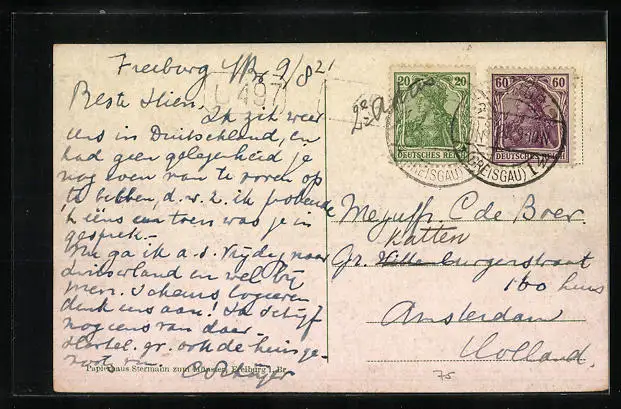 Freiburg i/Br 9/8 21
Beste Stien,
Ik zit weer
eens in Duitschland, en
had geen gelegenheid je
nog even van te voren op
te bellen, d.w.z. ik probeerde
't ééns en toen was je in
gesprek.-
Nu ga ik a.s. Vrijdag naar
Zwitserland en wel bij
mevr. logeeren
denk eens aan! Ik schrijf
nog eens van daar.
Hartel. gr. ook de huisge-
noots van
Papierhaus Stermann zum Münster, Freiburg i. Br.
U 497
20 20
DEUTSCHES REICH
60 60
DEUTSCHES REICH
(BREISGAU)
(BREISGAU) 1
Mejuffr. C de Boer
Katten
Gr. burgerstraat
160 huis
Amsterdam
Holland.
75